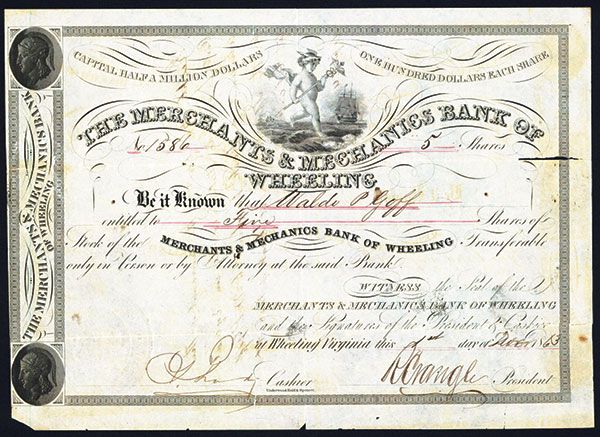 CAPITAL HALF A MILLION DOLLARS
ONE HUNDRED DOLLARS EACH SHARE
THE MERCHANTS & MECHANICS BANK OF
No. 1586 5 Shares
WHEELING
Be it Known that Waldo P Goff
entitled to Five Shares of
Stock of the MERCHANTS & MECHANICS BANK OF WHEELING Transferable
only in Person or by Attorney at the said Bank.
WITNESS the Seal of the
MERCHANTS & MECHANICS BANK OF WHEELING
and the Signatures of the President & Cashier
at Wheeling Virginia this day of 1863
Cashier
R Crangle President
THE MERCHANTS & MECHANICS BANK
OF WHEELING